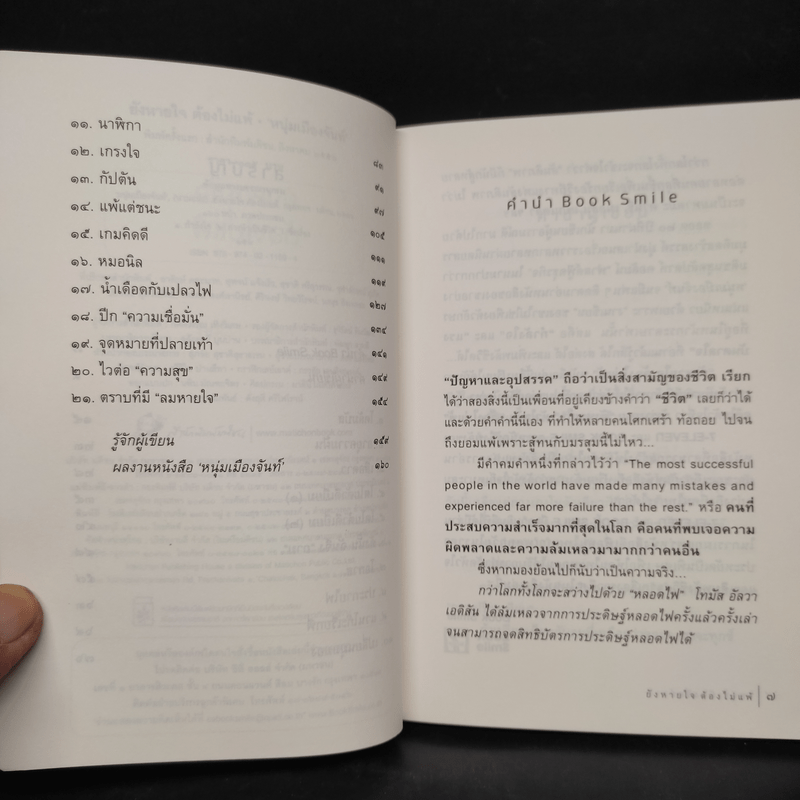 ๑๑. นาฬิกา ๘๓
๑๒. เกรงใจ ๙๑
๑๓. กัปตัน ๙๗
๑๔. แพ้แต่ชนะ ๑๐๕
๑๕. เกมคิดดี ๑๑๑
๑๖. หมอนิล ๑๑๙
๑๗. น้ำเดือดกับเปลวไฟ ๑๒๗
๑๘. ปีก “ความเชื่อมั่น” ๑๓๔
๑๙. จุดหมายที่ปลายเท้า ๑๔๑
๒๐. ไวต่อ “ความสุข” ๑๔๙
๒๑. ตราบที่มี “ลมหายใจ” ๑๕๔
รู้จักผู้เขียน ๑๕๙
ผลงานหนังสือ ‘หนุ่มเมืองจันท์’ ๑๖๐
คำนำ Book Smile
“ปัญหาและอุปสรรค” ถือว่าเป็นสิ่งสามัญของชีวิต เรียก
ได้ว่าสองสิ่งนี้เป็นเพื่อนที่อยู่เคียงข้างคำว่า “ชีวิต” เลยก็ว่าได้
และด้วยคำคำนี้นี่เอง ที่ทำให้หลายคนโศกเศร้า ท้อถอย ไปจน
ถึงยอมแพ้เพราะสู้ทนกับมรสุมนี้ไม่ไหว...
มีคำคมคำหนึ่งที่กล่าวไว้ว่า “The most successful
people in the world have made many mistakes and
experienced far more failure than the rest.” หรือ คนที่
ประสบความสำเร็จมากที่สุดในโลก คือคนที่พบเจอความ
ผิดพลาดและความล้มเหลวมามากกว่าคนอื่น
ซึ่งหากมองย้อนไปก็นับว่าเป็นความจริง...
กว่าโลกทั้งโลกจะสว่างไปด้วย “หลอดไฟ” โทมัส อัลวา
เอดิสัน ได้ล้มเหลวจากการประดิษฐ์หลอดไฟครั้งแล้วครั้งเล่า
จนสามารถจดสิทธิบัตรการประดิษฐ์หลอดไฟได้
ยังหายใจ ต้องไม่แพ้ ๗